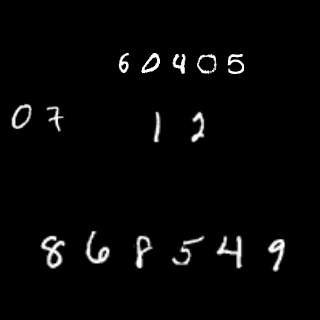 60405
07
12
868549